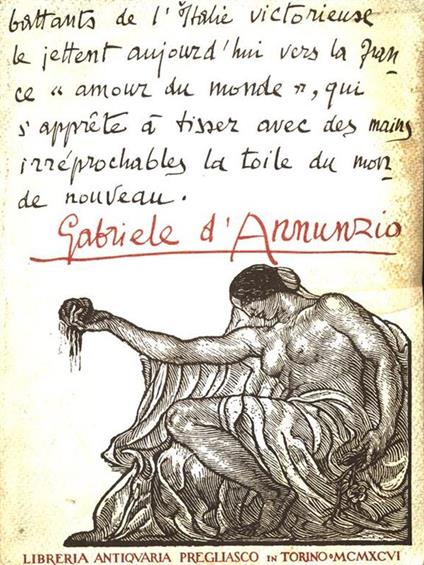 battants de l'Italie victorieuse
le jettent aujourd'hui vers la Fran
ce " amour du monde ", qui
s'apprête à tisser avec des mains
irréprochables la toile du mon
de nouveau.
Gabriele d'Annunzio
LIBRERIA ANTIQVARIA PREGLIASCO IN TORINO • MCMXCVI